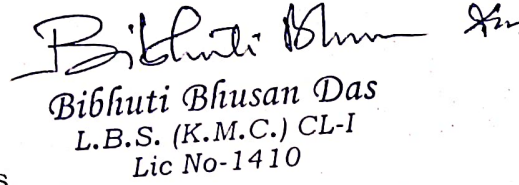 Bibhuti Bhusan
Bibhuti Bhusan Das
L.B.S. (K.M.C.) CL-I
Lic No-1410